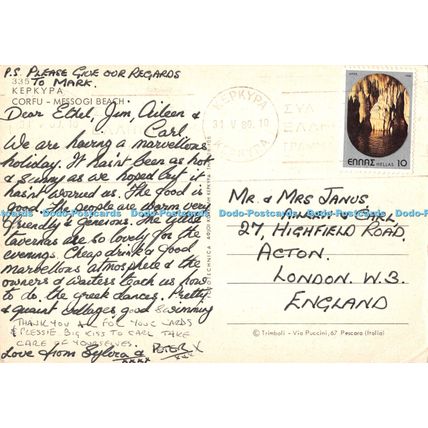 P.S. PLEASE GIVE OUR REGARDS
TO MARK.
335
ΚΕΡΚΥΡΑ
CORFU - MESSOGI BEACH
Dear Ethel, Jim, Aileen &
Carl
We are having a marvellous
holiday. It hasn't been as hot
& sunny as we hoped but it
hasn't worried us. The food is
good. The people are warm very
friendly & generous. The Greek
tavernas are so lovely for the
evenings. Cheap drink & good
marvellous atmosphere & the
owners & waiters teach us how
to do, the greek dances. Pretty
& quaint villages good swimming
THANKYOU ALL FOR YOUR CARDS
& PRESSIE BIG KISS TO CARL TAKE
CARE OF YOURSELVES.
Love from Sylvia & PETER X
xxxx xxx
ΚΕΡΚΥΡΑ
31 V 89. 10
ΚΕΡΚΥΡΑ
ΕΛΛΑΣ HELLAS 10
MR. & MRS JANUS,
AILEEN & CARL
27, HIGHFIELD ROAD,
ACTON.
LONDON. W.3.
ENGLAND
© Trimboli - Via Puccini, 67 Pescara (Italia)
Dodo-Postcards Dodo-Postcards Dodo-Postcards Dodo-Postcards Dodo-Postcards